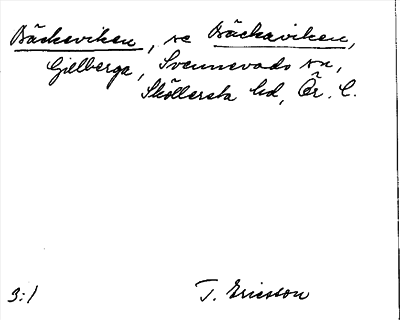 Bäckeviken, se Bäckaviken,
Gjelberga, Svennevads sn,
Sköllersta hd, Ör. l.
3:1
T. Ericsson